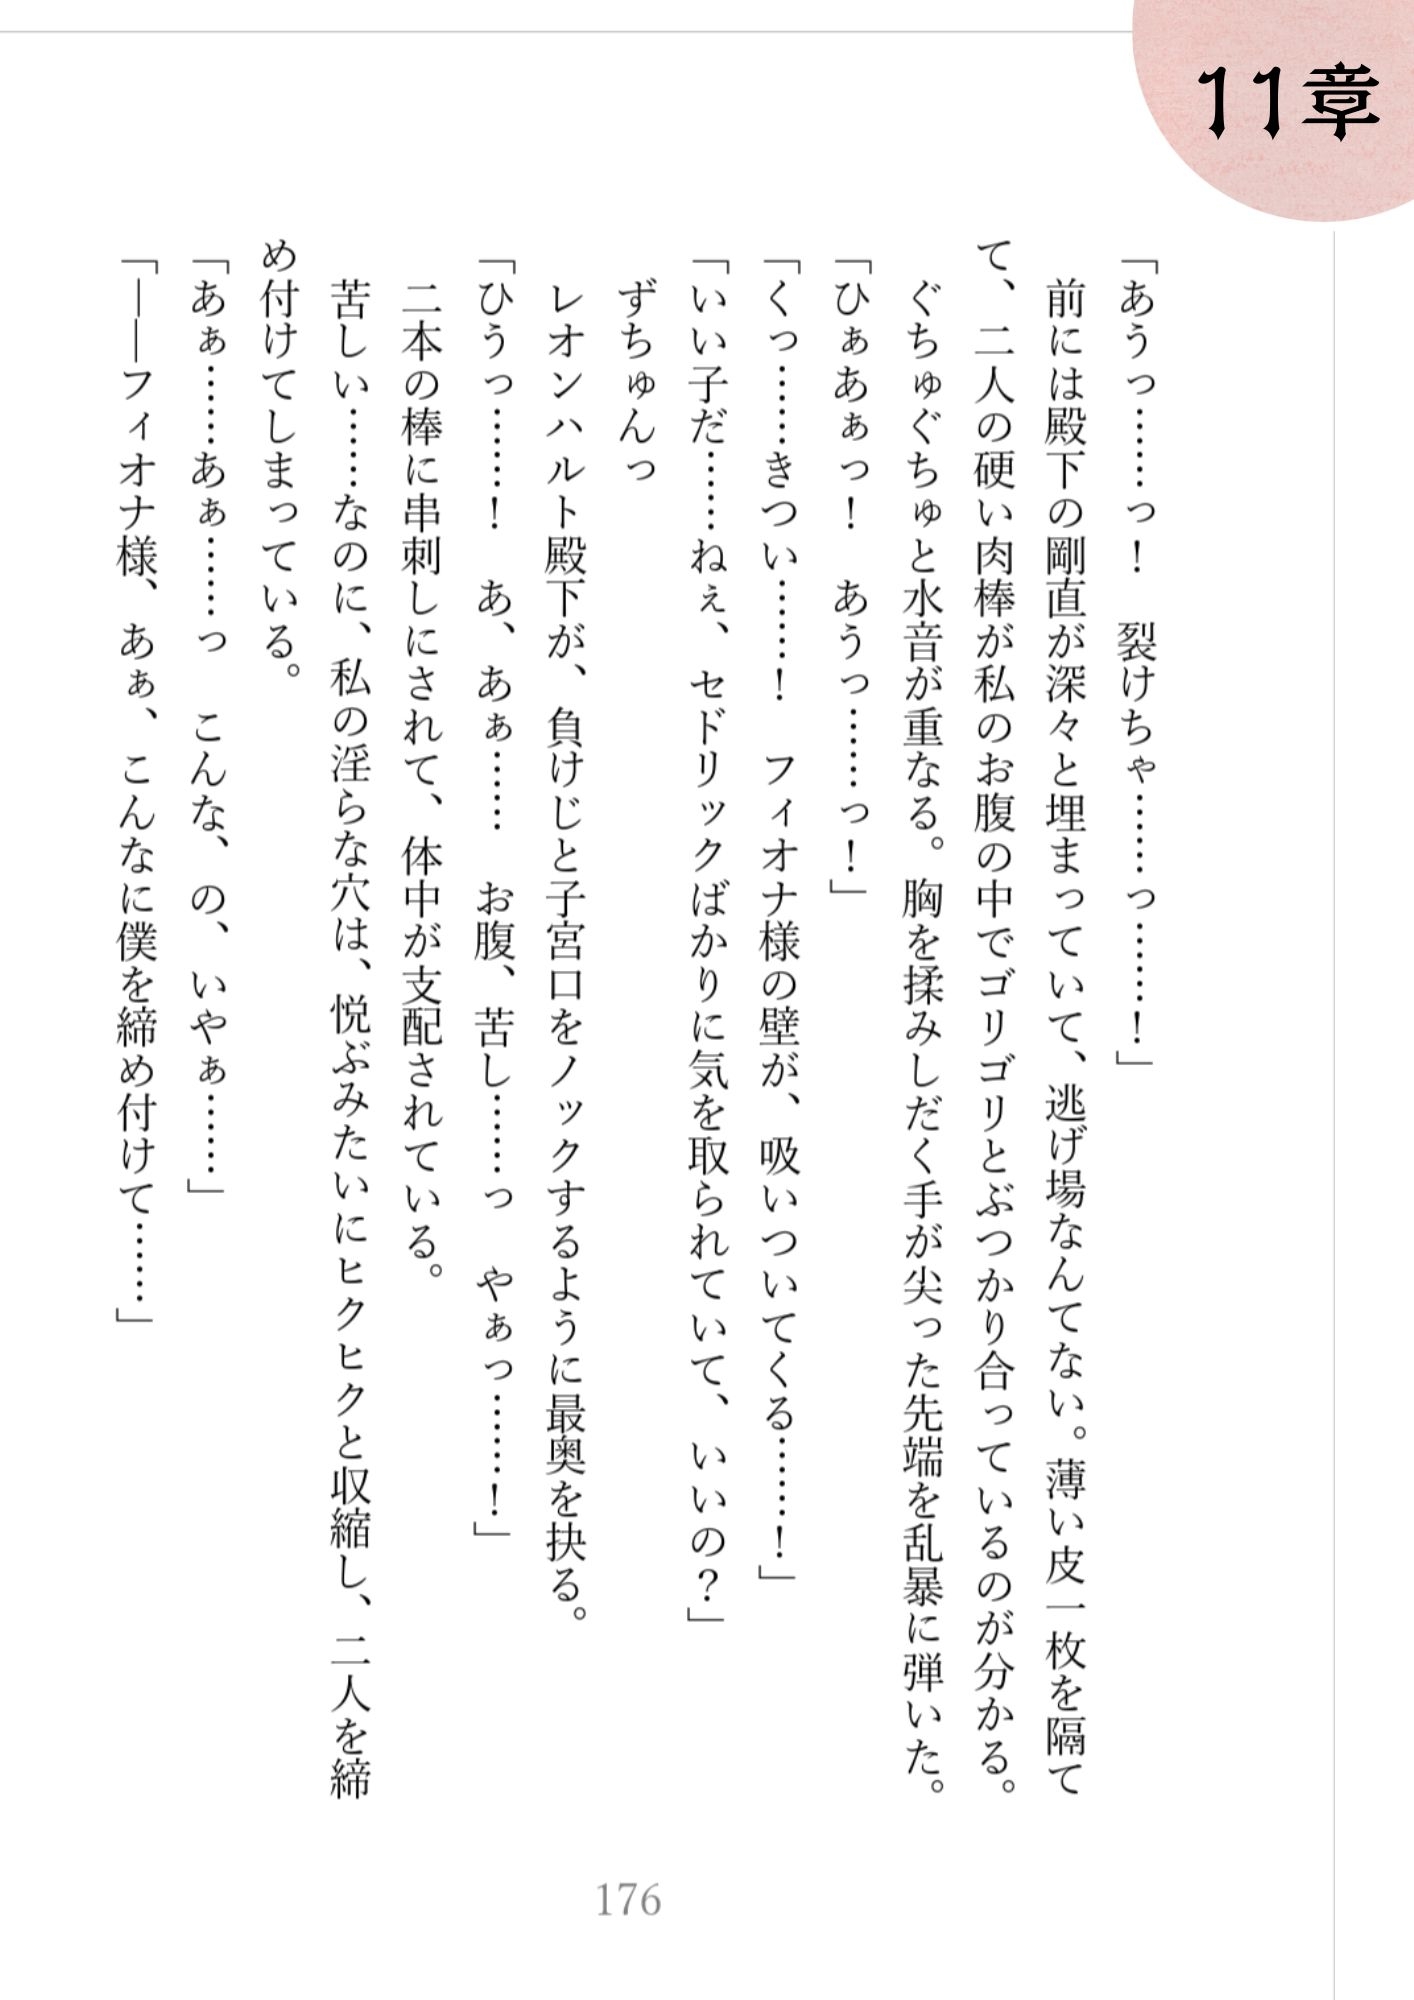 11章
「あうっ……っ！　裂けちゃ……っ……！」
　前には殿下の剛直が深々と埋まっていて、逃げ場なんてない。薄い皮一枚を隔て
て、二人の硬い肉棒が私のお腹の中でゴリゴリとぶつかり合っているのが分かる。
　ぐちゅぐちゅと水音が重なる。胸を揉みしだく手が尖った先端を乱暴に弾いた。
「ひぁあぁっ！　あうっ……っ！」
「くっ……きつい……！　フィオナ様の壁が、吸いついてくる……！」
「いい子だ……ねぇ、セドリックばかりに気を取られていて、いいの？」
　ずちゅんっ
　レオンハルト殿下が、負けじと子宮口をノックするように最奥を抉る。
「ひうっ……！　あ、あぁ……　お腹、苦し……っ　やぁっ……！」
　二本の棒に串刺しにされて、体中が支配されている。
　苦しい……なのに、私の淫らな穴は、悦ぶみたいにヒクヒクと収縮し、二人を締
め付けてしまっている。
「あぁ……あぁ……っ　こんな、の、いやぁ……」
「――フィオナ様、あぁ、こんなに僕を締め付けて……」
176